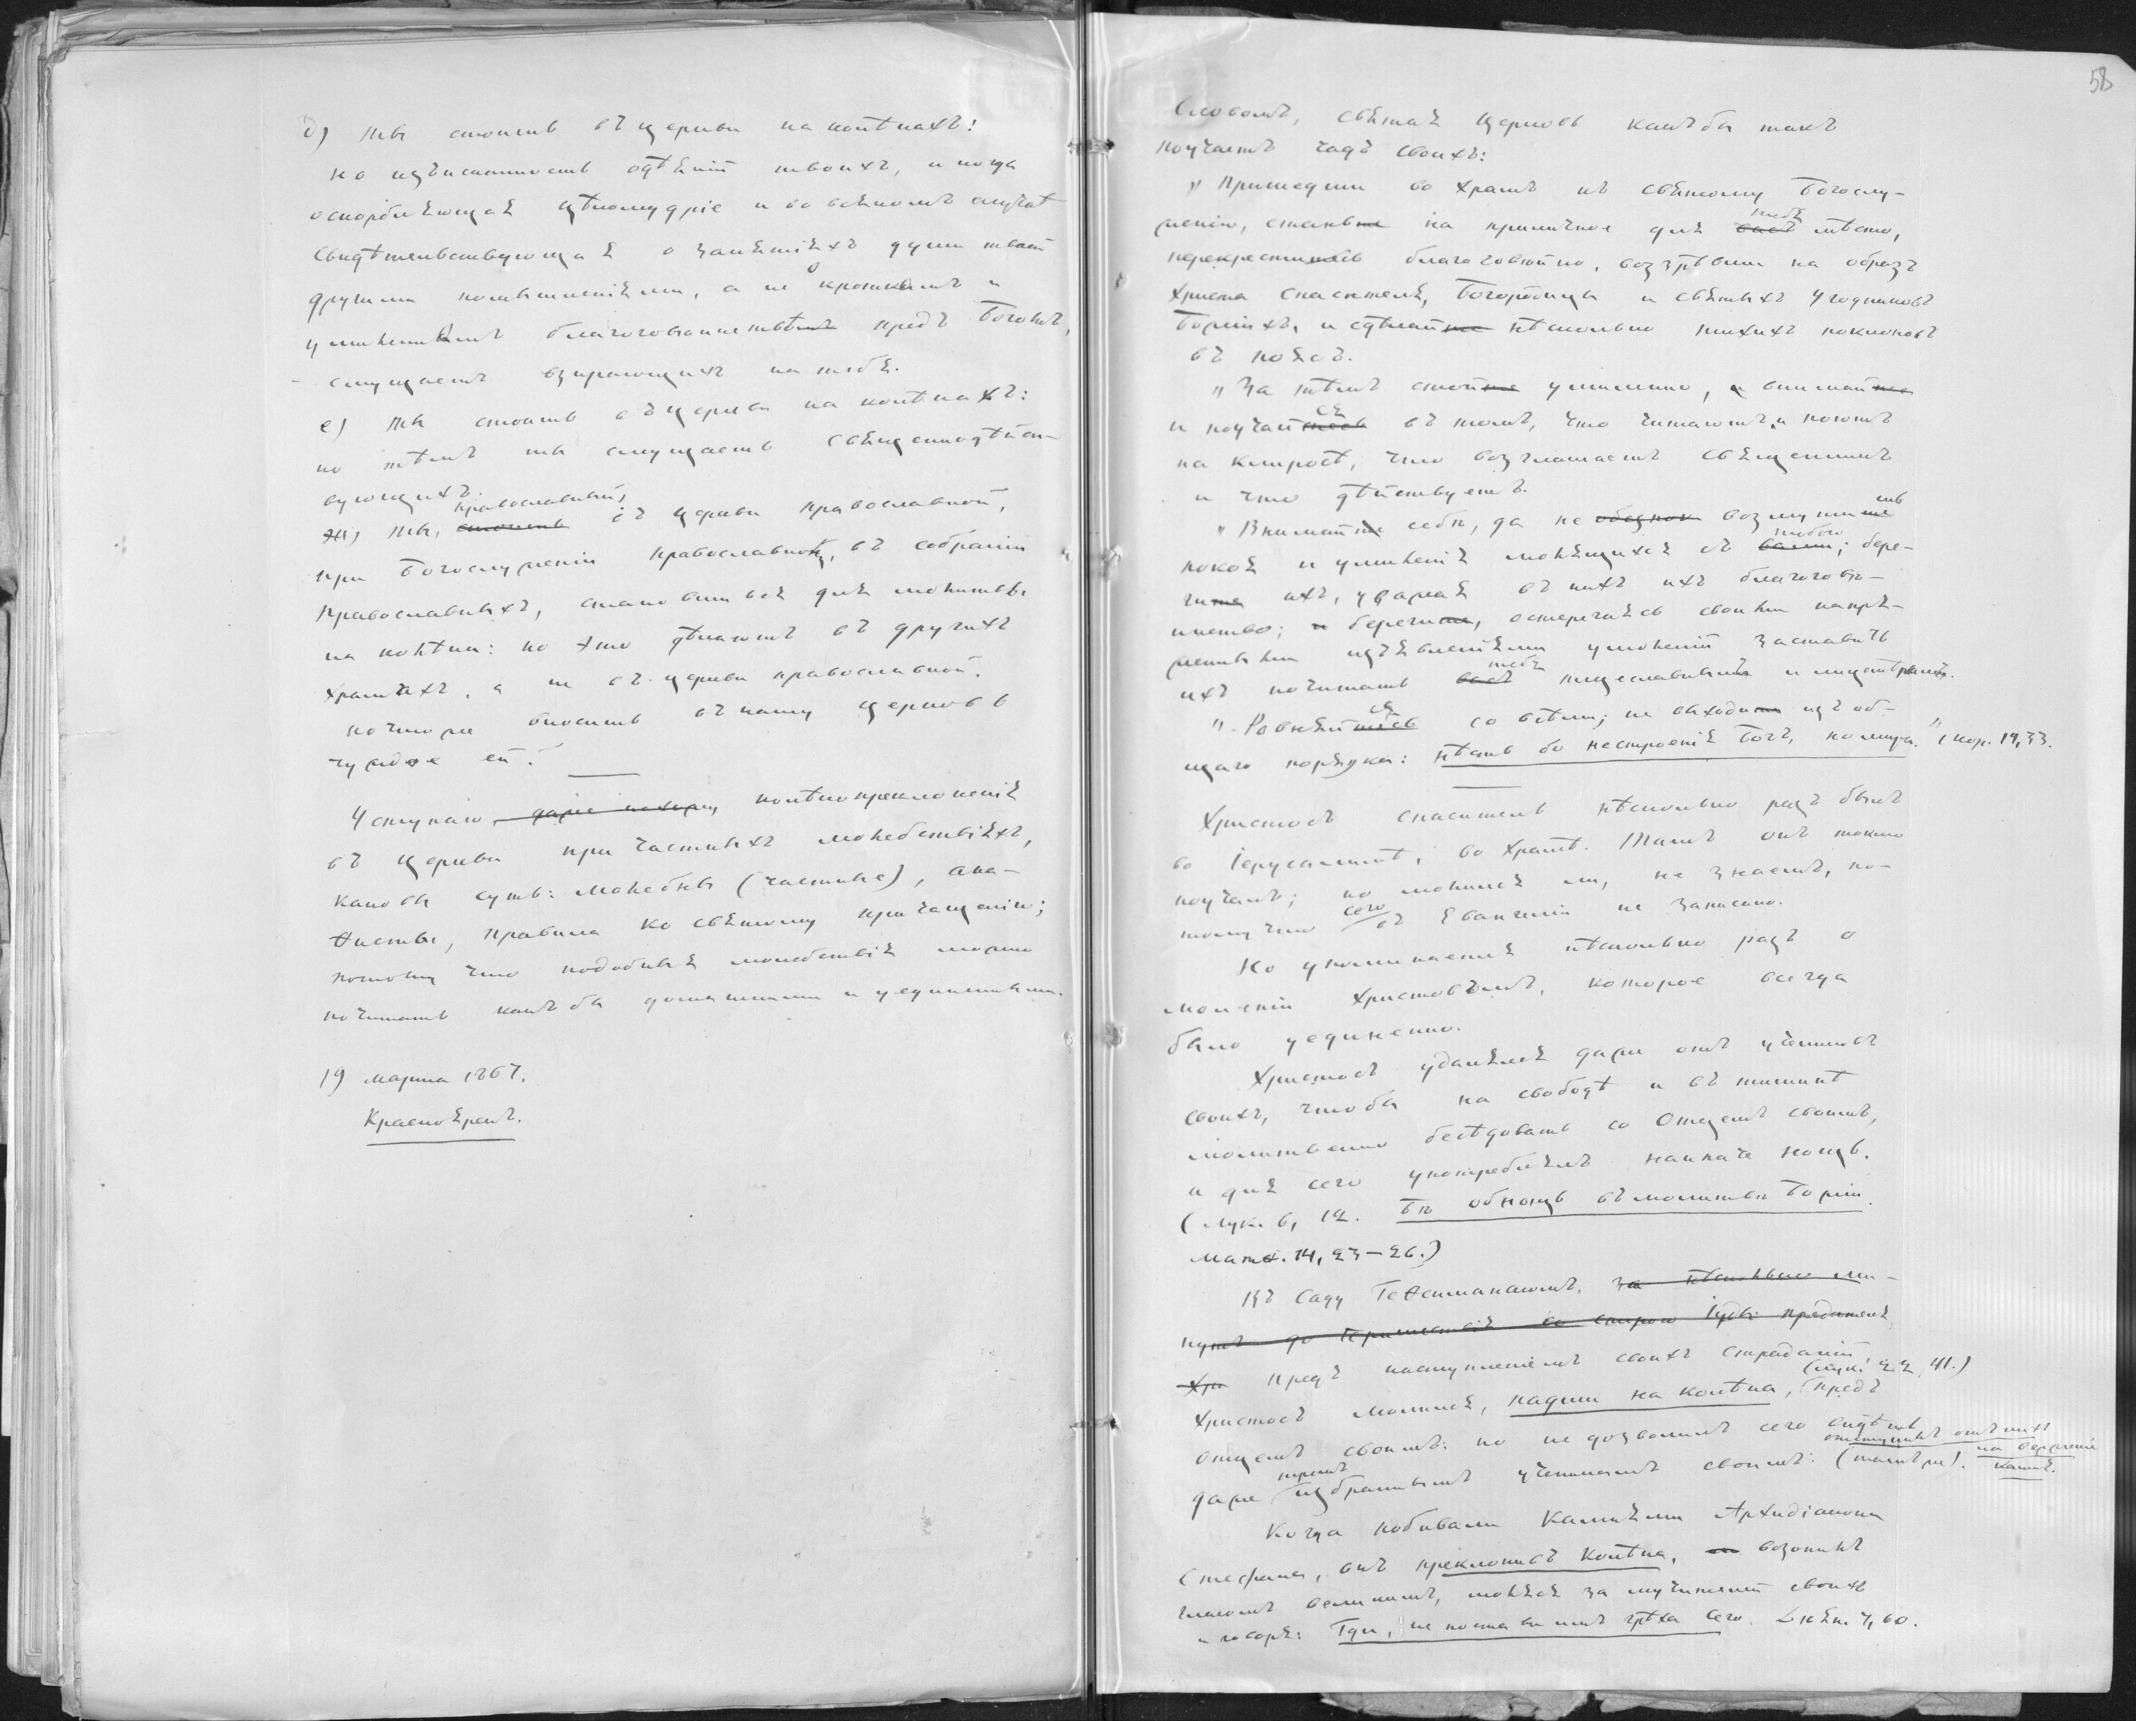 д) ты стоишь въ церкви на колѣнахъ:
но изысканность одѣяній твоихъ, иногда
оскорбляющая цѣломудріе и во всякомъ случаѣ
свидѣтельствующая о занятіяхъ души твоей
другими помышленіями, а не кроткимъ и
умиленнымъ благоговѣинствомъ предъ Богомъ,
смущаетъ взирающихъ на тебя.
е) ты стоишь въ церкви на колѣнахъ:
но тѣмъ ты смущаешь священнодѣйст-
вующихъ.
ж) ты, православный, стоишь въ церкви православной,
при Богослуженіи православномъ, въ собраніи
православныхъ, становишься для молитвы
на колѣни: но это дѣлаютъ въ другихъ
храмахъ, а не въ церкви православной.
почто же вносишь въ нашу церковь
чуждое ей?
Уступаю, даже похвалю колѣнопреклоненія
въ церкви при частныхъ молебствіяхъ,
каковы суть: молебны (частные), ака-
ѳисты, правила ко святому причащенію;
потому что подобныя молебствія можно
почитать какъ бы домашними и уединенными.
19 марта 1867.
Красноярскъ.
58
Словомъ, святая Церковь какъ бы такъ
поучаетъ чадъ своихъ:
"Пришедши во храмъ къ святому Богослу-
женію, станьте на приличное для васъ тебя мѣсто,
перекрестись благоговѣйно, воззрѣвши на образъ
Христа Спасителя, Богородицы и святыхъ Угодниковъ
Божіихъ, и сдѣлайте нѣсколько тихихъ поклоновъ
въ поясъ.
"За тѣмъ стойте умиленно, и внимайте
и поучайтесь ся въ томъ, что читаютъ и поютъ
на клиросѣ, что возглашаетъ священникъ
и что дѣйствуетъ.
"Внимайте себѣ, да не возмутите шь
покоя и умиленія молящихся съ вами тобою; бере-
гите ихъ, уважая въ нихъ ихъ благоговѣ-
инство; и берегите, остерегаясь своими напря-
женными изъявленіями умоленій заставить
ихъ почитать васъ тебя тщеславнымъ и лицемѣромъ.
"Ровняйтесь ся со всѣми; не выходите изъ об-
щаго порядка: нѣсть бо нестроенія Богъ, но мира." 1 Кор. 14, 33.
Христосъ Спаситель нѣсколько разъ былъ
во Іерусалимѣ, во храмѣ. Тамъ онъ токмо
поучалъ; но молился ли, не знаемъ, по-
тому что сего въ Евангеліи не записано.
Но упоминается нѣсколько разъ о
моленіи Христовомъ, которое всегда
было уединенно.
Христосъ удалялся даже отъ учениковъ
своихъ, чтобы на свободѣ и въ тишинѣ
молитвенно бесѣдовать со Отцемъ своимъ,
и для сего употреблялъ наипаче нощь.
(Лук. 6, 12. Бѣ обнощь въ молитвѣ Божіи.
Матѳ. 14, 23—26.)
Въ саду Геѳсиманскомъ, за нѣсколько ми-
нутъ до пришествія со спирою Іуды предателя
Хри предъ наступленіемъ своихъ страданій
Христосъ молился, падши на колѣна, (Лук. 22, 41.) предъ
отцемъ своимъ: но не дозволилъ сего видѣть
даже тремъ избраннымъ ученикамъ своимъ: (тамъ же). отступивъ отъ нихъ на верженіе камня.
Когда побивали камнями Архидіакона
Стефана, онъ преклонивъ колѣна, возопилъ
гласомъ великимъ, моляся за мучителей своихъ
и говоря: Гди, не постави имъ грѣха сего. Дѣян. 7, 60.